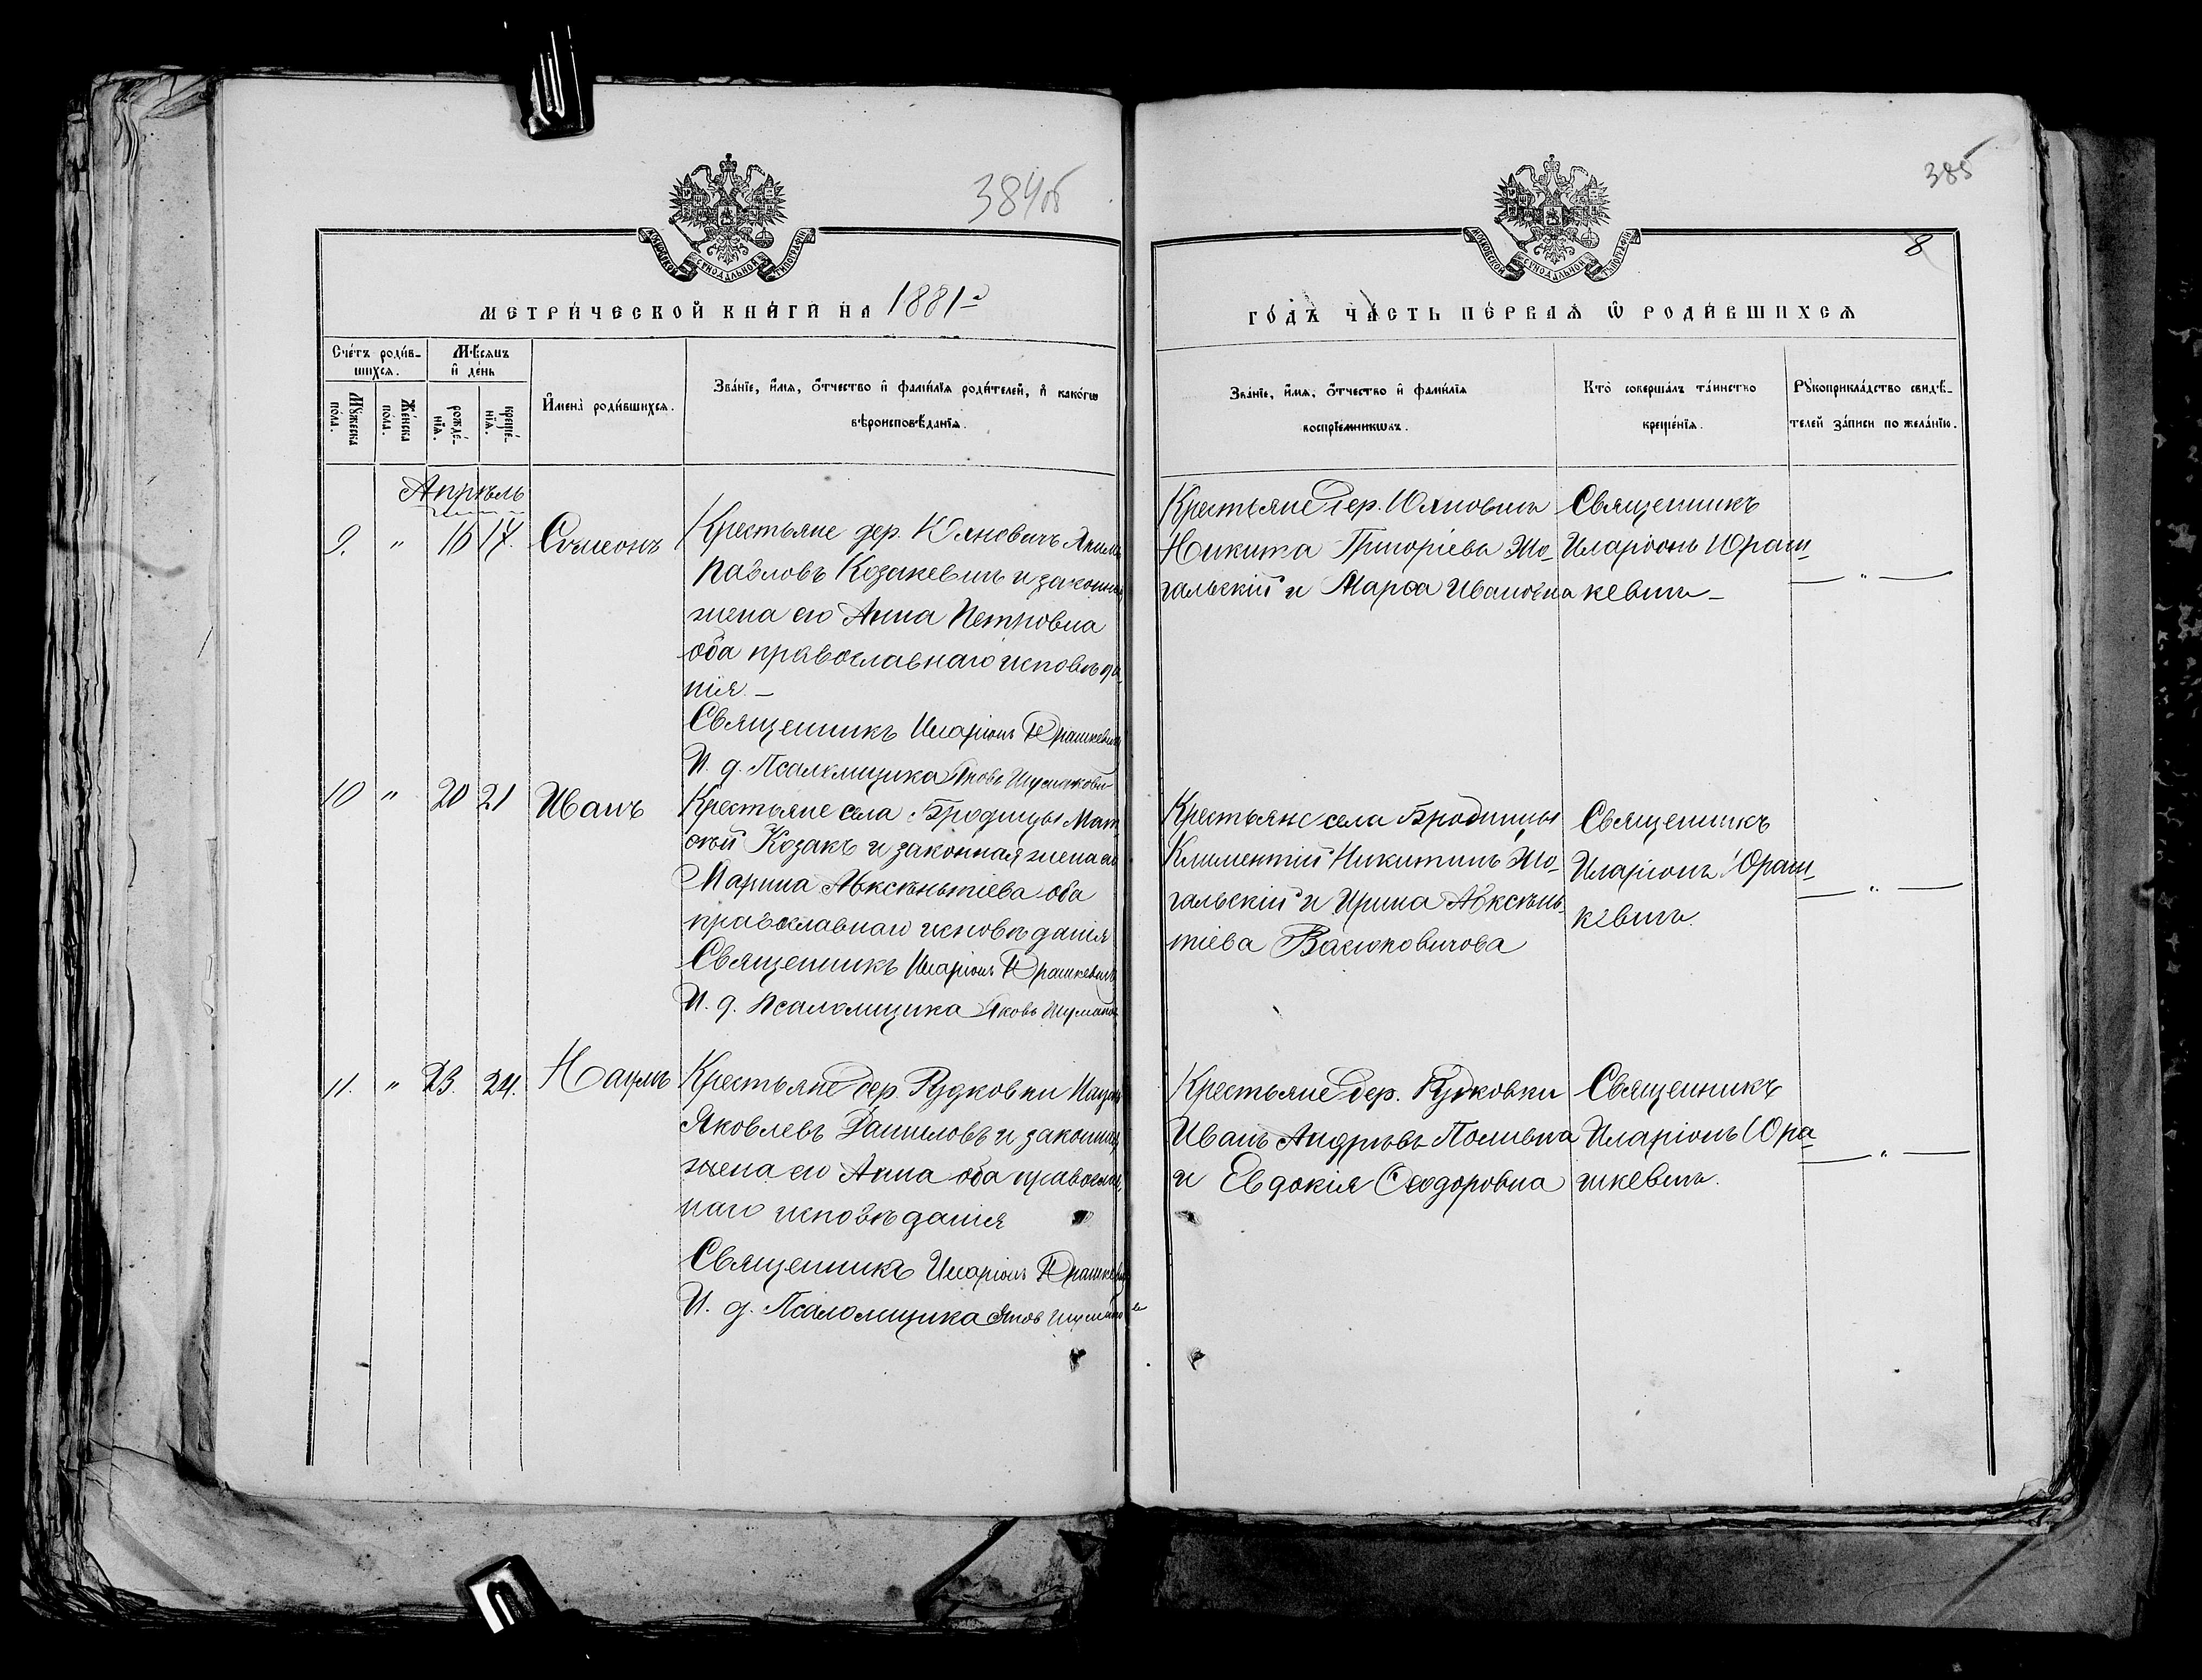 384об
385
8
МОСКОВСКОЙ СѴНОДАЛЬНОЙ ТИПОГРАФІИ
МОСКОВСКОЙ СѴНОДАЛЬНОЙ ТИПОГРАФІИ
МЕТРИЧЕСКОЙ КНИГИ НА 1881 г
ГОДЪ ЧАСТЬ ПЕРВАЯ Ѡ РОДИВШИХСЯ
Счетъ родив-
шихся.
Мѣсяцъ
и день
Мужеска
пола.
Женска
пола.
рожде-
нія.
креще-
нія.
Имена родившихся.
Званіе, имя, отчество и фамилія родителей, и какогѡ
вѣроисповѣданія.
Званіе, имя, отчество и фамилія
воспріемникѡвъ.
Кто совершалъ таинство
крещенія.
Рукоприкладство свидѣ-
телей записи по желанію.
Апрѣль
9. " 16 17. Симеонъ
Крестьяне дер. Юлновичъ
Павловъ Козакевичъ и законная
жена его Анна Петровна
оба православнаго исповѣда-
нія. —
Священникъ Иларіонъ Юрашкевичъ
И. д. Псаломщика Яковъ
Крестьяне дер.
Никита Григоріевъ Жо-
гальскій и Марѳа Ивановна
Священникъ
Иларіонъ Юраш-
кевичъ —
— " —
10 " 20 21 Иванъ
Крестьяне села Бродницы Мат
ѳей Козакъ и законная жена его
Марина Авксѣньтіева оба
православнаго исповѣданія
Священникъ Иларіонъ Юрашкевичъ
И. д. Псаломщика Яковъ
Крестьяне села Бродницы
Климентій Никитинъ Жо-
гальскій и Ирина Авксѣнь-
тіева Васюковичова
Священникъ
Иларіонъ Юраш-
кевичъ.
— " —
11. " 23. 24. Наумъ
Крестьяне дер. Рудковки
Яковлевъ Даниловъ и законная
жена его Анна оба православ-
наго исповѣданія
Священникъ Иларіонъ Юрашкевичъ
И. д. Псаломщика Яковъ
Крестьяне дер. Рудковки
Иванъ Андрѣевъ Поливка
и Евдокія Ѳеодоровна
Священникъ
Иларіонъ Юра-
шкевичъ.
— " —